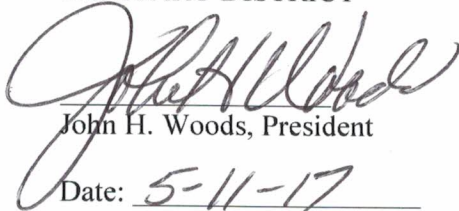 John H Woods
John H. Woods, President
Date: 5-11-17